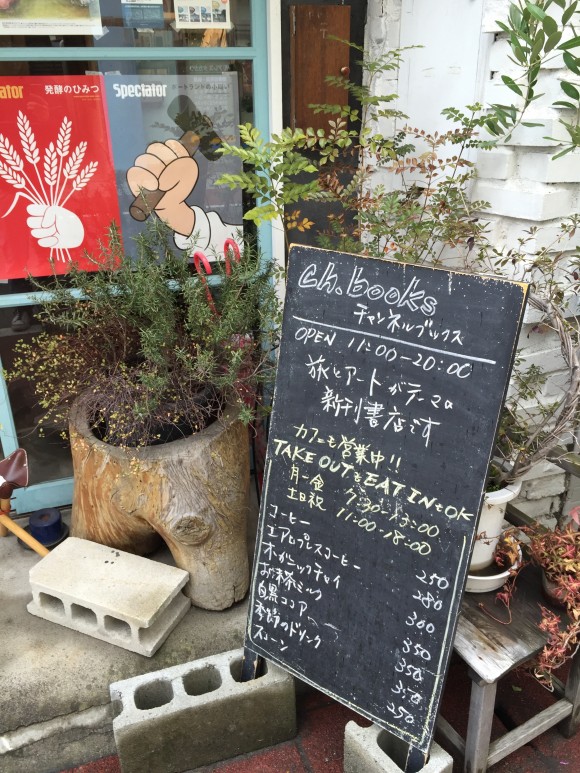 ator
発酵のひみつ
Spectator
ch.books
チャンネルブックス
OPEN 11:00-20:00
旅とアートがテーマの
新刊書店です
カフェも営業中!!
TAKE OUTもEAT INもOK
月-金 7:30-18:00
土日祝 11:00-18:00
コーヒー 250
エアロプレスコーヒー 280
オーガニックチャイ 300
お抹茶ミルク 350
白黒ココア 350
季節のドリンク 350
スコーン 250